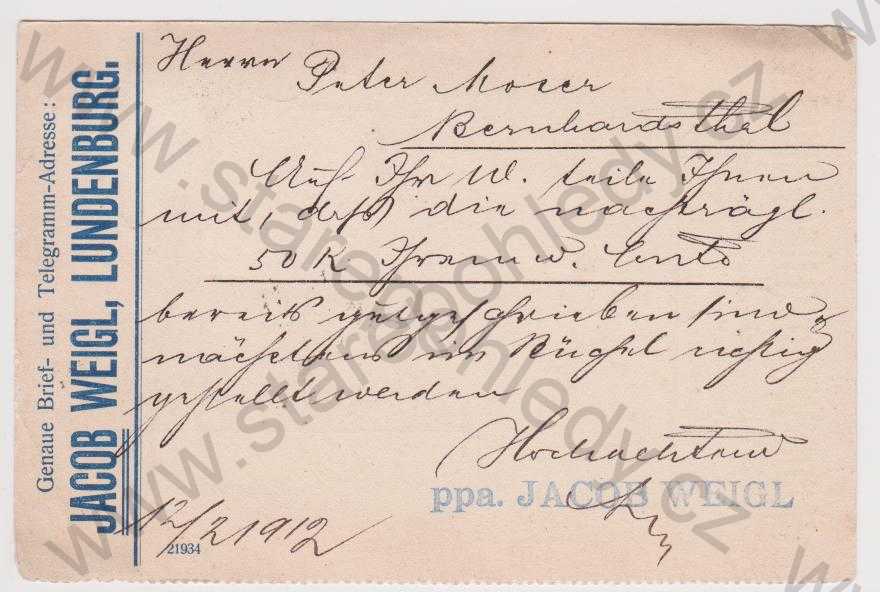 Genaue Brief- und Telegramm-Adresse:
JACOB WEIGL, LUNDENBURG.
Herrn Peter Moser
Bernhardsthal
Auf Ihr W. teile Ihnen
mit, daß die nachträgl.
50 K Ihrem w. Conto
bereits gutgeschrieben sind &
nächstens im Büchel richtig
gestellt werden
Hochachtend
ppa. JACOB WEIGL
12/2 1912
21934
www.starepohledy.cz
www.starepohledy.cz